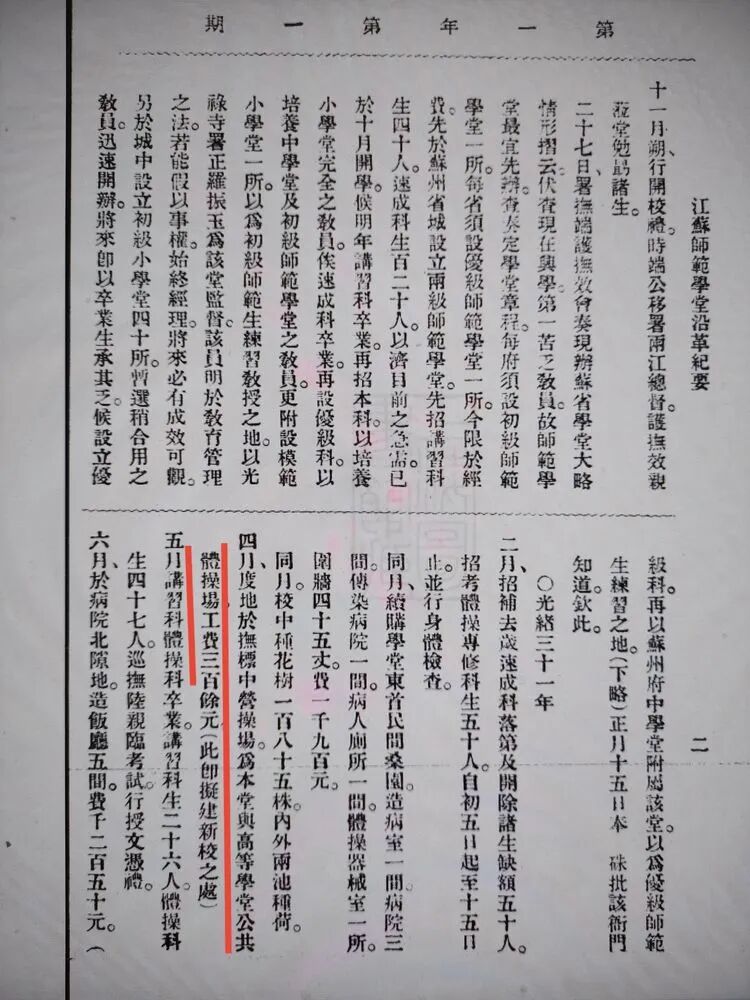 第一年第一期
江蘇師範學堂沿革紀要
二
十一月朔行開校禮時端公移署兩江總督護撫效親
蒞堂勉勗諸生。
二十七日、署撫端護撫效會奏現辦蘇省學堂大略
情形摺云伏查現在興學第一苦乏敎員故師範學
堂最宜先辦查奏定學堂章程每府須設初級師範
學堂一所每省須設優級師範學堂一所。今限於經
費先於蘇州省城設立兩級師範學堂。先招講習科
生四十人。速成科生百二十人。以濟目前之急需。已
於十月開學候明年講習科卒業再招本科以培養
小學堂完全之敎員。俟速成科卒業。再設優級科以
培養中學堂及初級師範學堂之敎員。更附設模範
小學堂一所。以爲初級師範生練習敎授之地。以光
祿寺署正羅振玉爲該堂監督。該員明於敎育管理
之法。若能假以事權。始終經理。將來必有成效可觀。
另於城中設立初級小學堂四十所。暫選稍合用之
敎員。迅速開辦。將來卽以卒業生承其乏。候設立優
級科。再以蘇州府中學堂附屬該堂。以爲優級師範
生練習之地。(下略)正月十五日本 硃批該衙門
知道。欽此。
○光緒三十一年
二月、招補去歲速成科落第及開除諸生缺額五十人。
招考體操專修科生五十人。自初五日起至十五日
止。並行身體檢查。
同月、續購學堂東首民間桑園。造病室一間。病院三
間。傳染病院一間。病人廁所一間。體操器械室一所。
圍牆四十五丈。費一千九百元。
同月、校中種花樹一百八十五株。內外兩池種荷。
四月、度地於撫標中營操場。爲本堂與高等學堂公共
體操場。工費三百餘元(此卽擬建新校之處)
五月、講習科體操科卒業。講習科生二十六人。體操科
生四十七人。巡撫陸親臨考試。行授文憑禮。
六月、於病院北隙地。造飯廳五間。費千二百五十元。(